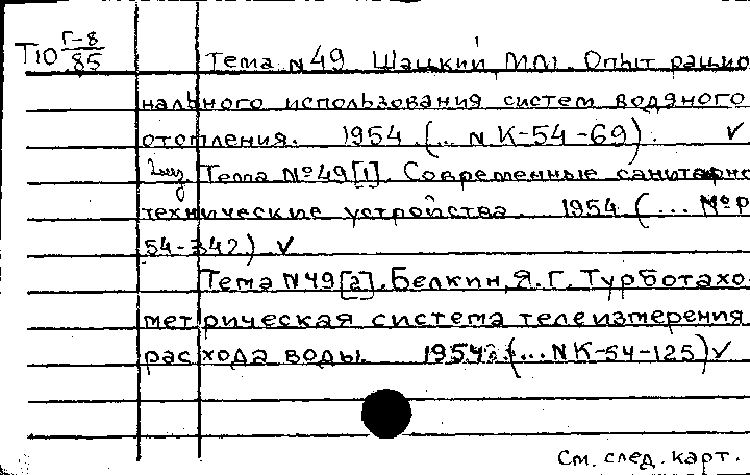 Т10 Г-8/85
Тема N49 Шацкий, М.М. Опыт рацио
нального использования систем водяного
отопления. 1954 (... N К-54-69). ✓
Тема №49[1]. Современные санитарно
технические устройства. 1954 (... №Р
54-342) ✓
Тема N49[2]. Белкин, Я.Г. Турботахо
метрическая система телеизмерения
расхода воды. 1954 (... N К-54-125) ✓
См. след. карт.